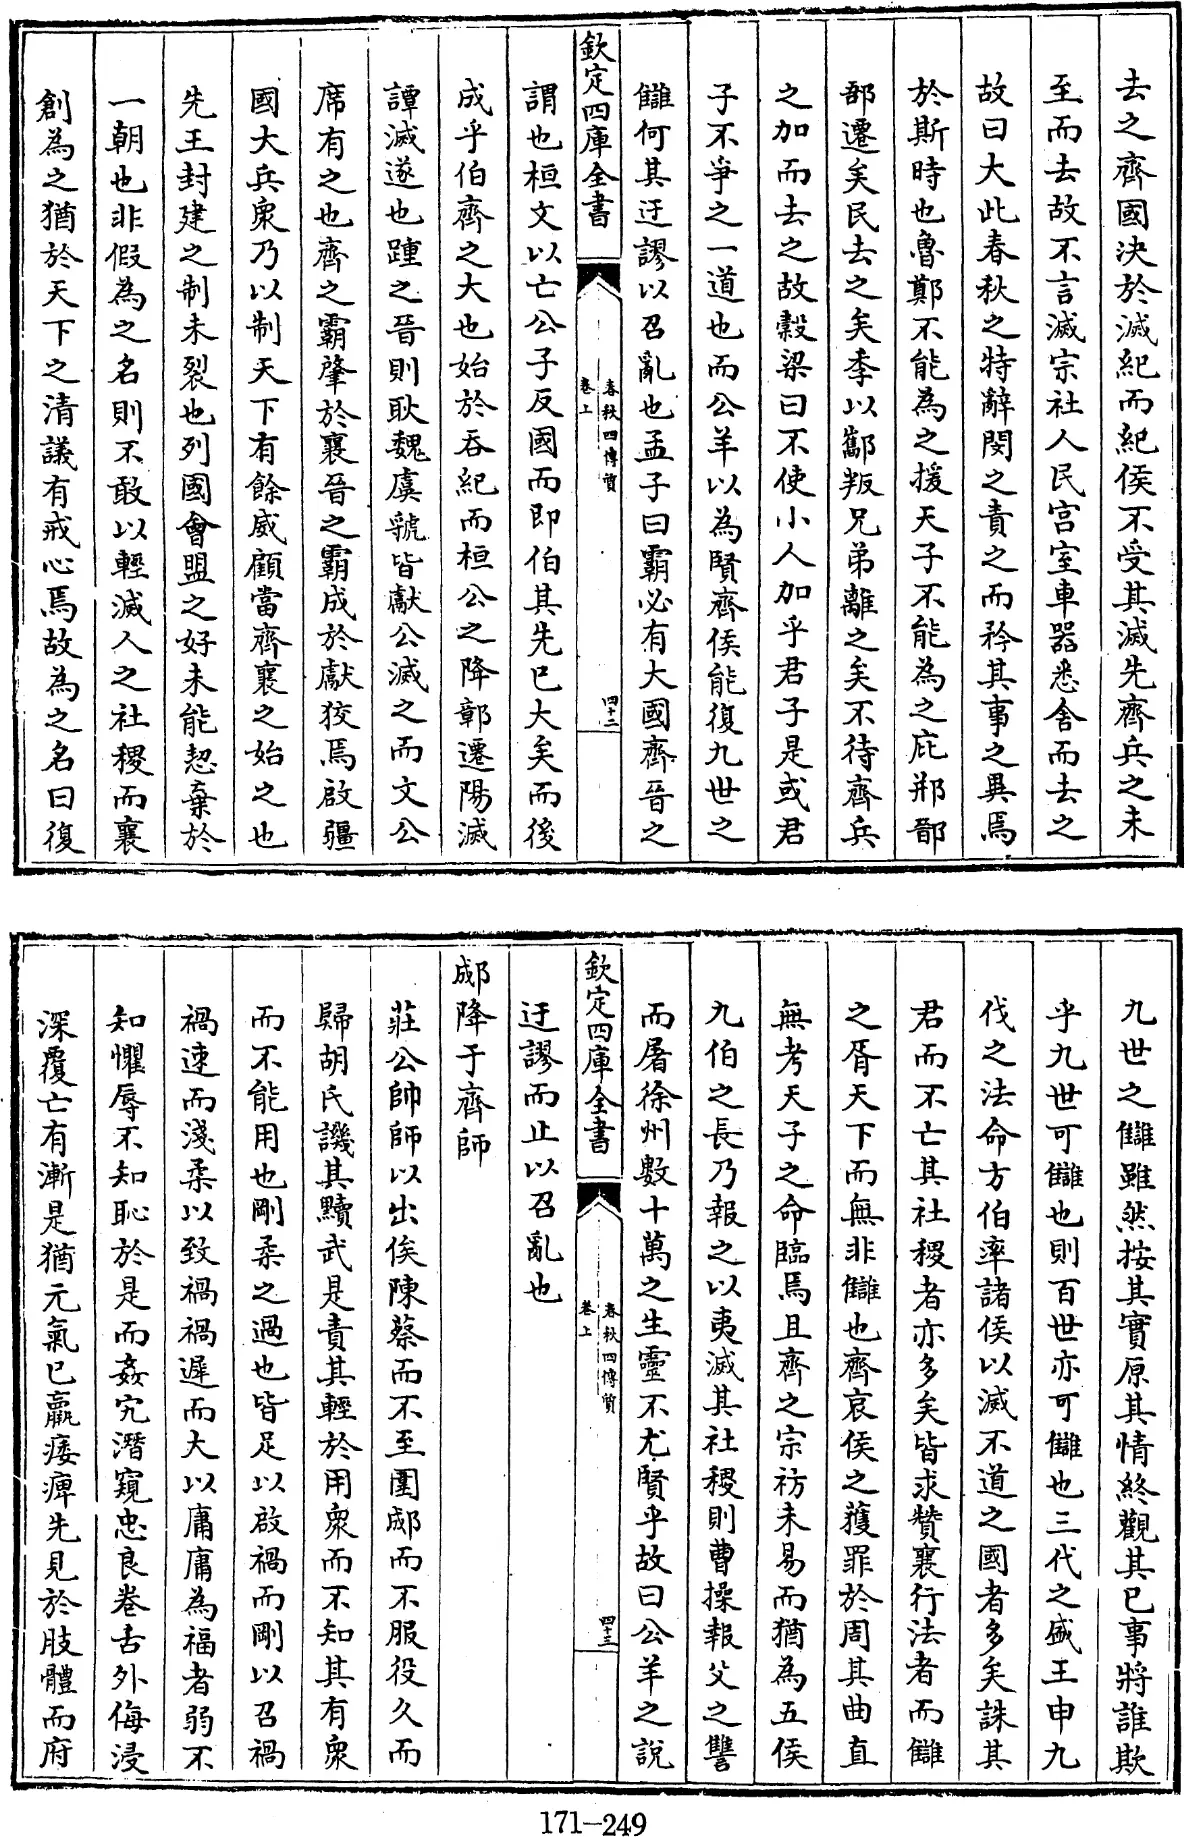 去之齊國決於滅紀而紀侯不受其滅先齊兵之未
至而去故不言滅宗社人民宮室車器悉舍而去之
故曰大此春秋之特辭閔之責之而矜其事之異焉
於斯時也魯鄭不能為之援天子不能為之庇邢鄑
郚遷矣民去之矣季以酅叛兄弟離之矣不待齊兵
之加而去之故穀梁曰不使小人加乎君子是或君
子不爭之一道也而公羊以為賢齊侯能復九世之
讎何其迂謬以召亂也孟子曰霸必有大國齊晉之
欽定四庫全書
春秋四傳質
卷上
四十二
謂也桓文以亡公子反國而即伯其先已大矣而後
成乎伯齊之大也始於吞紀而桓公之降鄣遷陽滅
譚滅遂也踵之晉則耿魏虞虢皆獻公滅之而文公
席有之也齊之霸肇於襄晉之霸成於獻狡焉啟疆
國大兵衆乃以制天下有餘威顧當齊襄之始之也
先王封建之制未裂也列國會盟之好未能恝棄於
一朝也非假為之名則不敢以輕滅人之社稷而襄
創為之猶於天下之清議有戒心焉故為之名曰復
九世之讎雖然按其實原其情終觀其已事將誰欺
乎九世可讎也則百世亦可讎也三代之盛王申九
伐之法命方伯率諸侯以滅不道之國者多矣誅其
君而不亡其社稷者亦多矣皆求贊襄行法者而讎
之胥天下而無非讎也齊哀侯之獲罪於周其曲直
無考天子之命臨焉且齊之宗祊未易而猶為五侯
九伯之長乃報之以夷滅其社稷則曹操報父之讐
而屠徐州數十萬之生靈不尤賢乎故曰公羊之說
欽定四庫全書
春秋四傳質
卷上
四十三
迂謬而止以召亂也
郕降于齊師
莊公帥師以出俟陳蔡而不至圍郕而不服役久而
歸胡氏譏其黷武是責其輕於用衆而不知其有衆
而不能用也剛柔之過也皆足以啟禍而剛以召禍
禍速而淺柔以致禍禍遲而大以庸庸為福者弱不
知懼辱不知恥於是而姦宄潛窺忠良卷舌外侮浸
深覆亡有漸是猶元氣已羸痿痺先見於肢體而府
171-249